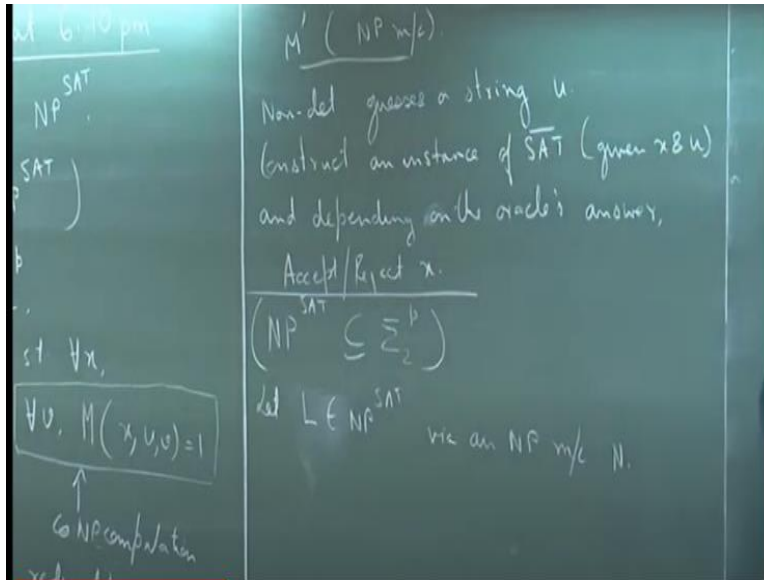 at 6.10 pm
NP^SAT.
P^SAT)
st ∀x,
∀v, M(x,u,v)=1
↑
coNP computation
M' (NP m/c).
Non-det guesses a string u.
Construct an instance of S̅A̅T̅ (given x & u)
and depending on the oracle's answer,
Accept/Reject x.
(NP^SAT ⊆ Σ₂^p)
Let L ∈ NP^SAT via an NP m/c N.